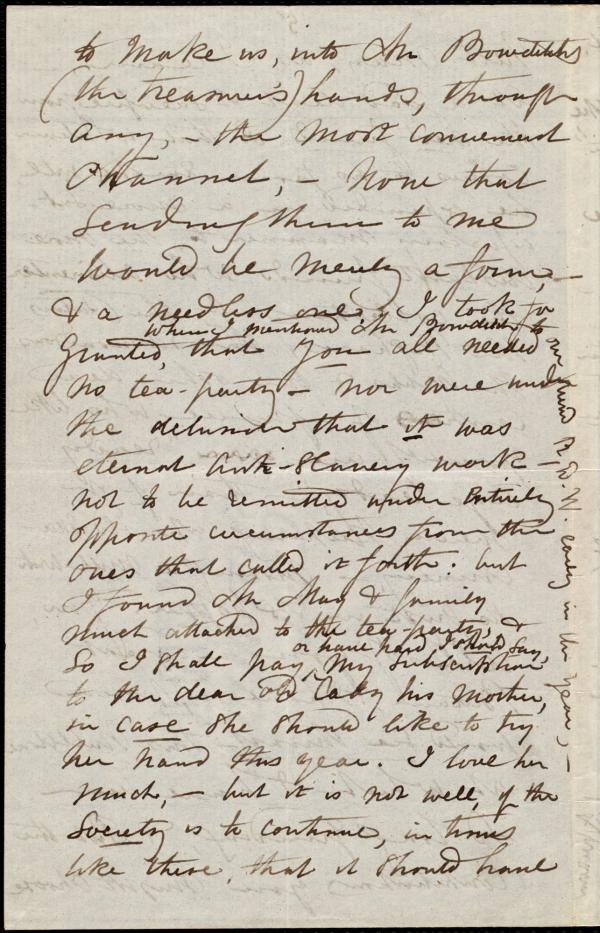 to make us, into Mr Bowditch's
(the treasurer's) hands, through
any, - the most convenient
channel, - none that
sending them to me
would be merely a form, -
& a needless one. I took for
when I mentioned Mr Bowditch to
granted, that you all needed
no tea-party - nor were under
the delusion that it was
eternal Anti-Slavery work -
not to be remitted under entirely
opposite circumstances from the
ones that called it forth: but
I found Mr May & family
much attached to the tea-party, &
or have paid, I should say,
so I shall pay my subscription
to the dear old Lady his mother,
in case she should like to try
her hand this year. I love her
much, - but it is not well, if the
Society is to continue, in times
like these, that it should have
early in the year, -